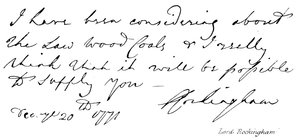 I have been considering about
the Law wood Coals & I really
think that it will be possible
to supply you —
Rockingham
Decr. ye 20th 1771
Lord Rockingham